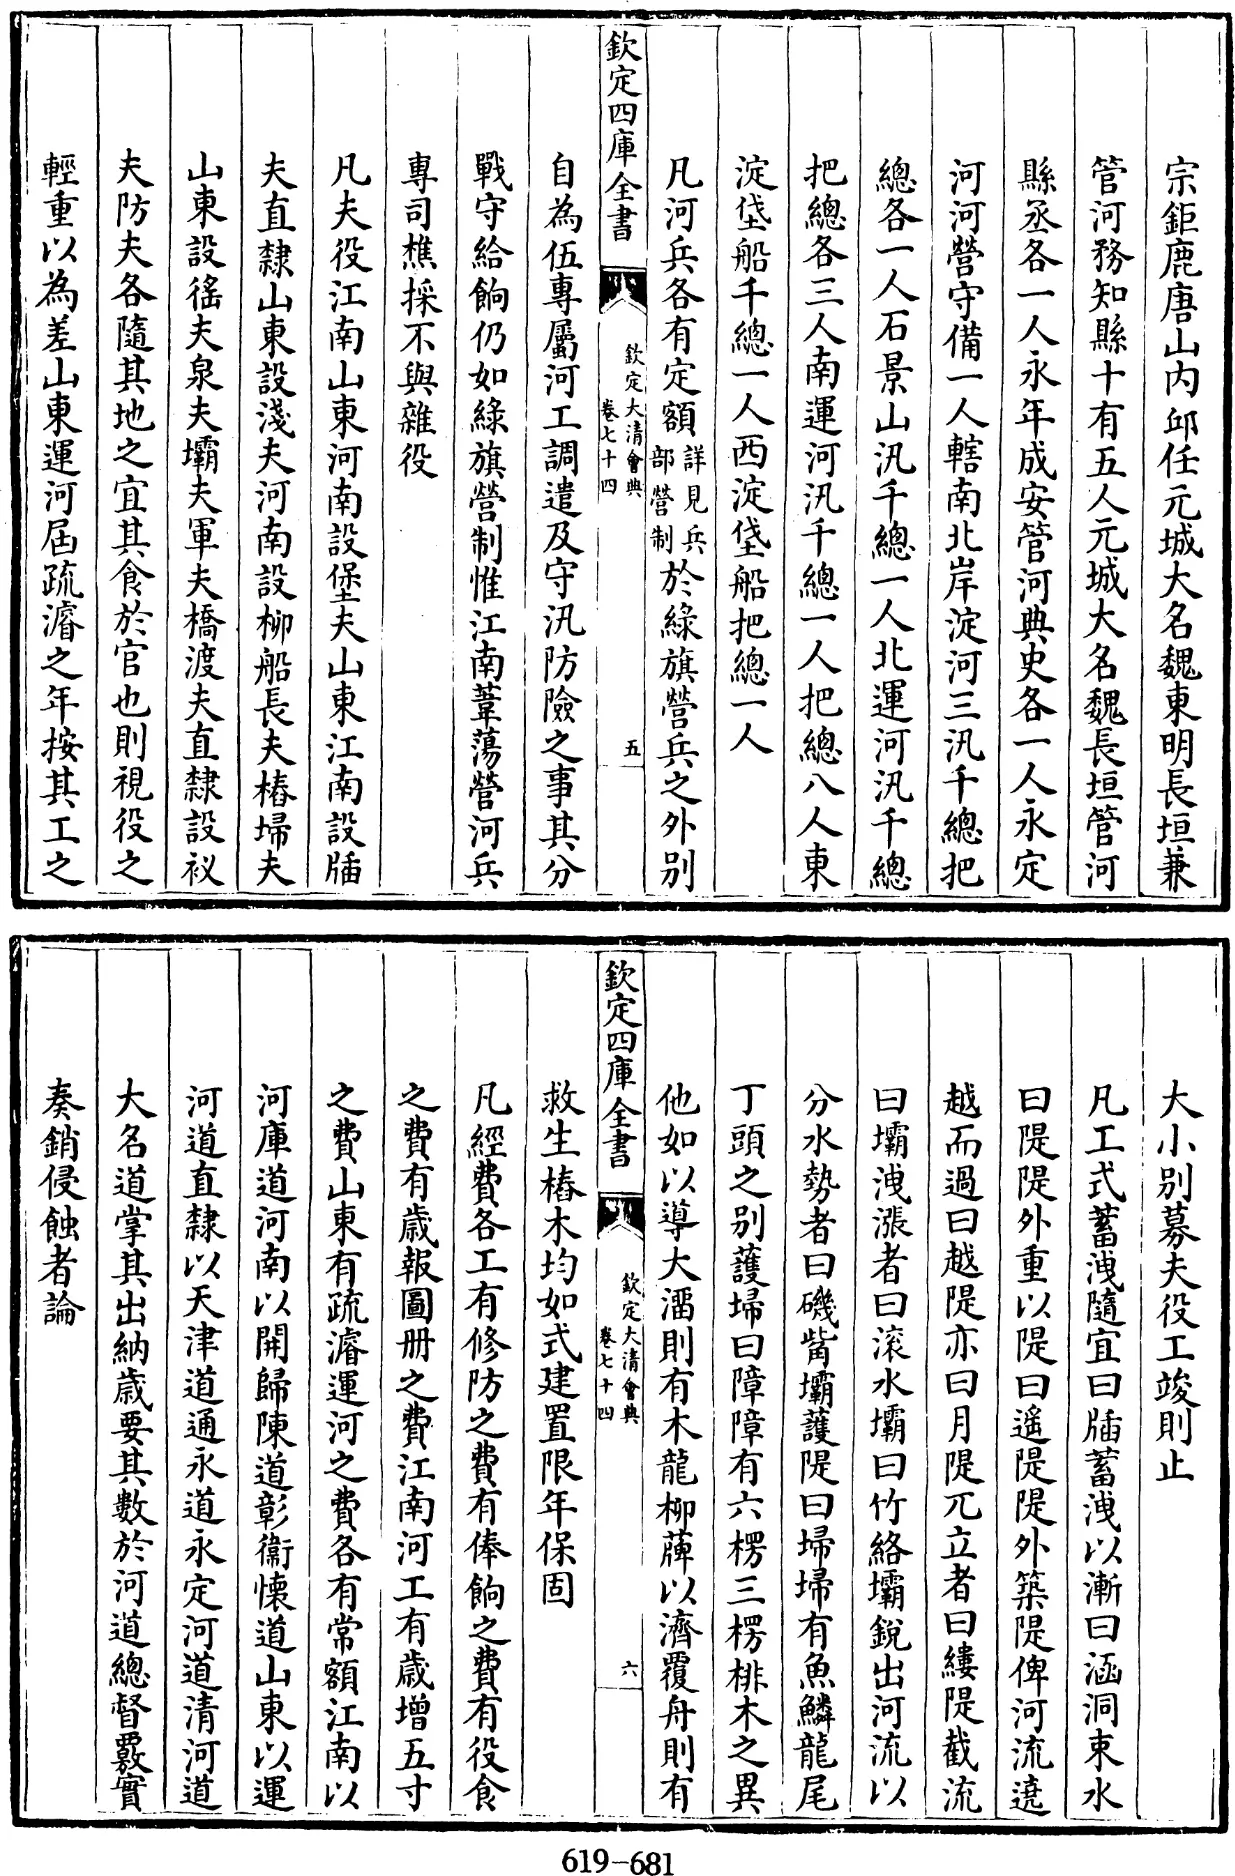 宗鉅鹿唐山内邱任元城大名魏東明長垣兼
管河務知縣十有五人元城大名魏長垣管河
縣丞各一人永年成安管河典史各一人永定
河河營守備一人轄南北岸淀河三汛千總把
總各一人石景山汛千總一人北運河汛千總
把總各三人南運河汛千總一人把總八人東
淀垡船千總一人西淀垡船把總一人
凡河兵各有定額詳見兵部營制於綠旗營兵之外别
欽定四庫全書
欽定大清會典
卷七十四
五
自為伍專屬河工調遣及守汛防險之事其分
戰守給餉仍如綠旗營制惟江南葦蕩營河兵
專司樵採不與雜役
凡夫役江南山東河南設堡夫山東江南設牐
夫直隸山東設淺夫河南設柳船長夫樁埽夫
山東設徭夫泉夫壩夫軍夫橋渡夫直隸設衩
夫防夫各隨其地之宜其食於官也則視役之
輕重以為差山東運河屆疏濬之年按其工之
大小别募夫役工竣則止
凡工式蓄洩隨宜曰牐蓄洩以漸曰涵洞束水
曰隄隄外重以隄曰遥隄隄外築隄俾河流遶
越而過曰越隄亦曰月隄兀立者曰縷隄截流
曰壩洩漲者曰滚水壩曰竹絡壩銳出河流以
分水勢者曰磯觜壩護隄曰埽埽有魚鱗龍尾
丁頭之别護埽曰障障有六楞三楞排木之異
他如以導大溜則有木龍柳𥱼以濟覆舟則有
欽定四庫全書
欽定大清會典
卷七十四
六
救生樁木均如式建置限年保固
凡經費各工有修防之費有俸餉之費有役食
之費有歲報圖册之費江南河工有歲增五寸
之費山東有疏濬運河之費各有常額江南以
河庫道河南以開歸陳道彰衛懷道山東以運
河道直隸以天津道通永道永定河道清河道
大名道掌其出納歲要其數於河道總督覈實
奏銷侵蝕者論
619-681